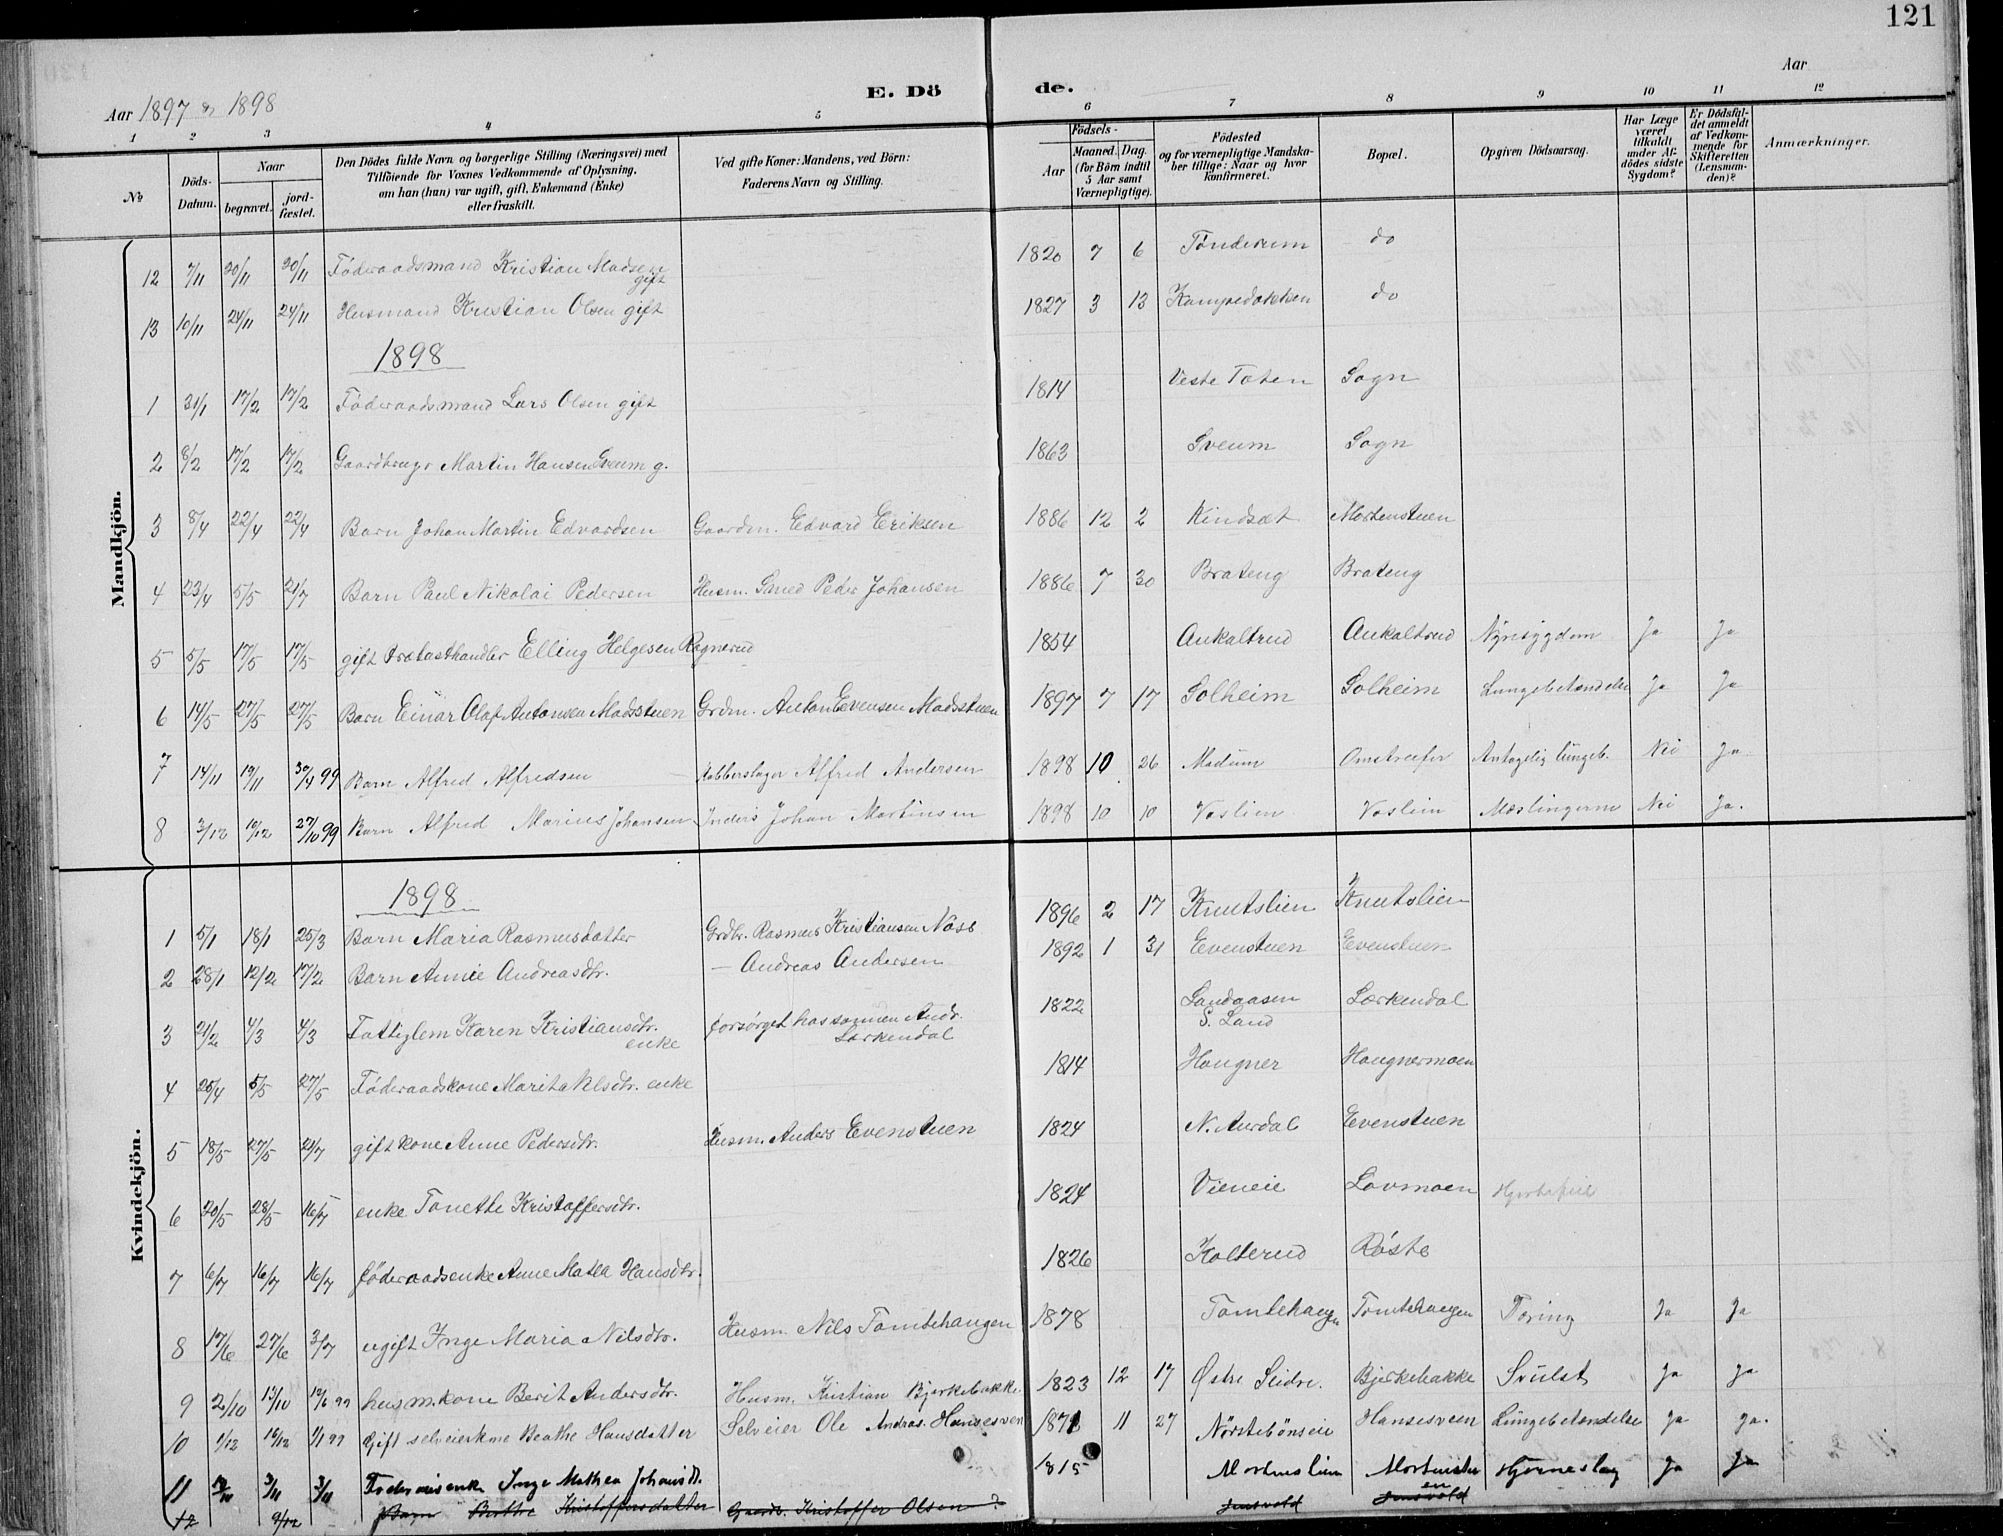 121
Aar 1897 & 1898
E. Dö
de.
Aar
1 2 3 4 5 6 7 8 9 10 11 12
No
Döds-Datum.
Naar
begravet.
jord-fæstet.
Den Dödes fulde Navn og borgerlige Stilling (Næringsvei) med
Tilföiende for Voxnes Vedkommende af Oplysning,
om han (hun) var ugift, gift, Enkemand (Enke)
eller fraskilt.
Ved gifte Koner: Mandens, ved Börn:
Faderens Navn og Stilling.
Födsels-
Aar
Maaned. Dag.
(for Börn indtil
5 Aar samt
Værnepligtige).
Födested
og for værnepligtige Mandska-
ber tillige: Naar og hvor
konfirmeret.
Bopæl.
Opgiven Dödsaarsag.
Har Læge
været
tilkaldt
under Af-
dödes sidste
Sygdom?
Er Dödsfal-
det anmeldt
af Vedkom-
mende for
Skifteretten
(Lensman-
den)?
Anmærkninger.
Mandkjön.
12 7/11 20/11 20/11 Föderaadsmand Kristian Madsen gift 1820 7 6 Tönderum do
13 10/11 24/11 24/11 Husmand Kristian Olsen gift 1827 3 13 Kampedokken do
1898
1 31/1 17/2 17/2 Föderaadsmand Lars Olsen gift 1814 Veste Toten Sogn
2 8/2 17/2 17/2 Gaardbruger Martin Hansen Sveum g. 1863 Sveum Sogn
3 8/4 22/4 22/4 Barn Johan Martin Edvardsen Gaardm. Edvard Eriksen 1886 12 2 Kindsæt Mortenstuen
4 23/4 5/5 21/7 Barn Paul Nikolai Pedersen Husm. Smed Peder Johansen 1886 7 30 Brateng Brateng
5 5/5 17/5 17/5 gift Trælasthandler Elling Helgesen Ragnerud 1854 Aukaltrud Aukaltrud Nyresygdom Ja Ja
6 14/5 27/5 27/5 Barn Einar Olaf Antonsen Madsstuen Grdm. Anton Evensen Madsstuen 1897 7 17 Solheim Solheim Lungebetændelse Ja Ja
7 14/11 19/11 30/4 99 Barn Alfred Alfredsen Kobberslager Alfred Andersen 1898 10 26 Madum Omstreifer Antagelig lungeb. Nei Ja.
8 3/12 19/12 27/10 99 Barn Alfred Marius Johansen Inders Johan Martinsen 1898 10 10 Voslien Voslien Mæslingerne Nei Ja.
Kvindekjön.
1898
1 5/1 18/1 25/3 Barn Maria Rasmusdatter Grdbr. Rasmus Kristiansen Næss 1896 2 17 Knutslien Knutslien
2 28/1 12/2 17/2 Barn Annie Andreasdtr. — Andreas Andersen 1892 1 31 Evenstuen Evenstuen
3 21/2 4/3 4/3 Fattiglem Karen Kristiansdtr. enke forsörget hos sönnen Andr. Lærkendal 1822 Sandaasen S. Land Lærkendal
4 25/4 5/5 27/5 Föderaadskone Marit Nilsdtr. enke 1814 Haugner Haugnermoen
5 18/5 27/5 21/7 gift kone Anne Pedersdtr. Husm. Anders Evenstuen 1824 N. Aurdal Evenstuen
6 20/5 28/5 16/7 enke Tonette Kristoffersdtr. 1824 Vieneie Lovmoen Hjertefeil
7 6/7 16/7 16/7 föderaadsenke Anne Matea Hansdtr. 1826 Kolterud Röste
8 17/6 27/6 3/7 ugift Inge Maria Nilsdtr. Husm. Nils Tomtehaugen 1878 Tomtehaugen Tomtehaugen Tæring Ja Ja
9 2/10 13/10 19/6 99 husm.kone Berit Andersdtr. Husm. Kristian Bjerkebakke 1823 12 17 Østre Slidre. Bjerkebakke Svulst Ja Ja
10 1/12 16/12 1/1 99 Gift selveierkone Beathe Hansdatter Selveier Ole Andras. Hansesveen 1871 11 27 Nörstebönseie Hansesveen Lungebetændelse Ja Ja.
11 3/11 3/11 Föderaadsenke Inge Mathea Johansdt. 1815 Mortenslien Mortenstuen Hjerneslag Ja Ja
12 9/12 Barn Birthe Kristoffersdatter Gaardbr. Kristoffer Olsen Jensvold Jensvold